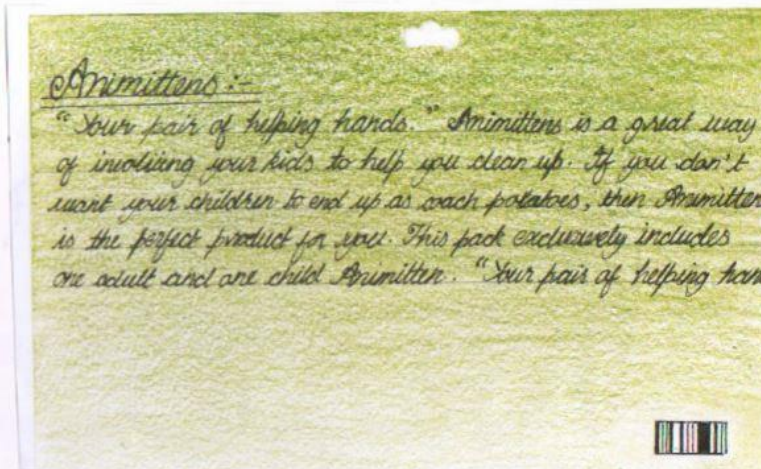 Animittens :-
"Your pair of helping hands." Animittens is a great way
of involving your kids to help you clean up. If you don't
want your children to end up as coach potatoes, then Animitten
is the perfect product for you. This pack exclusively includes
one adult and one child Animitten. "Your pair of helping han